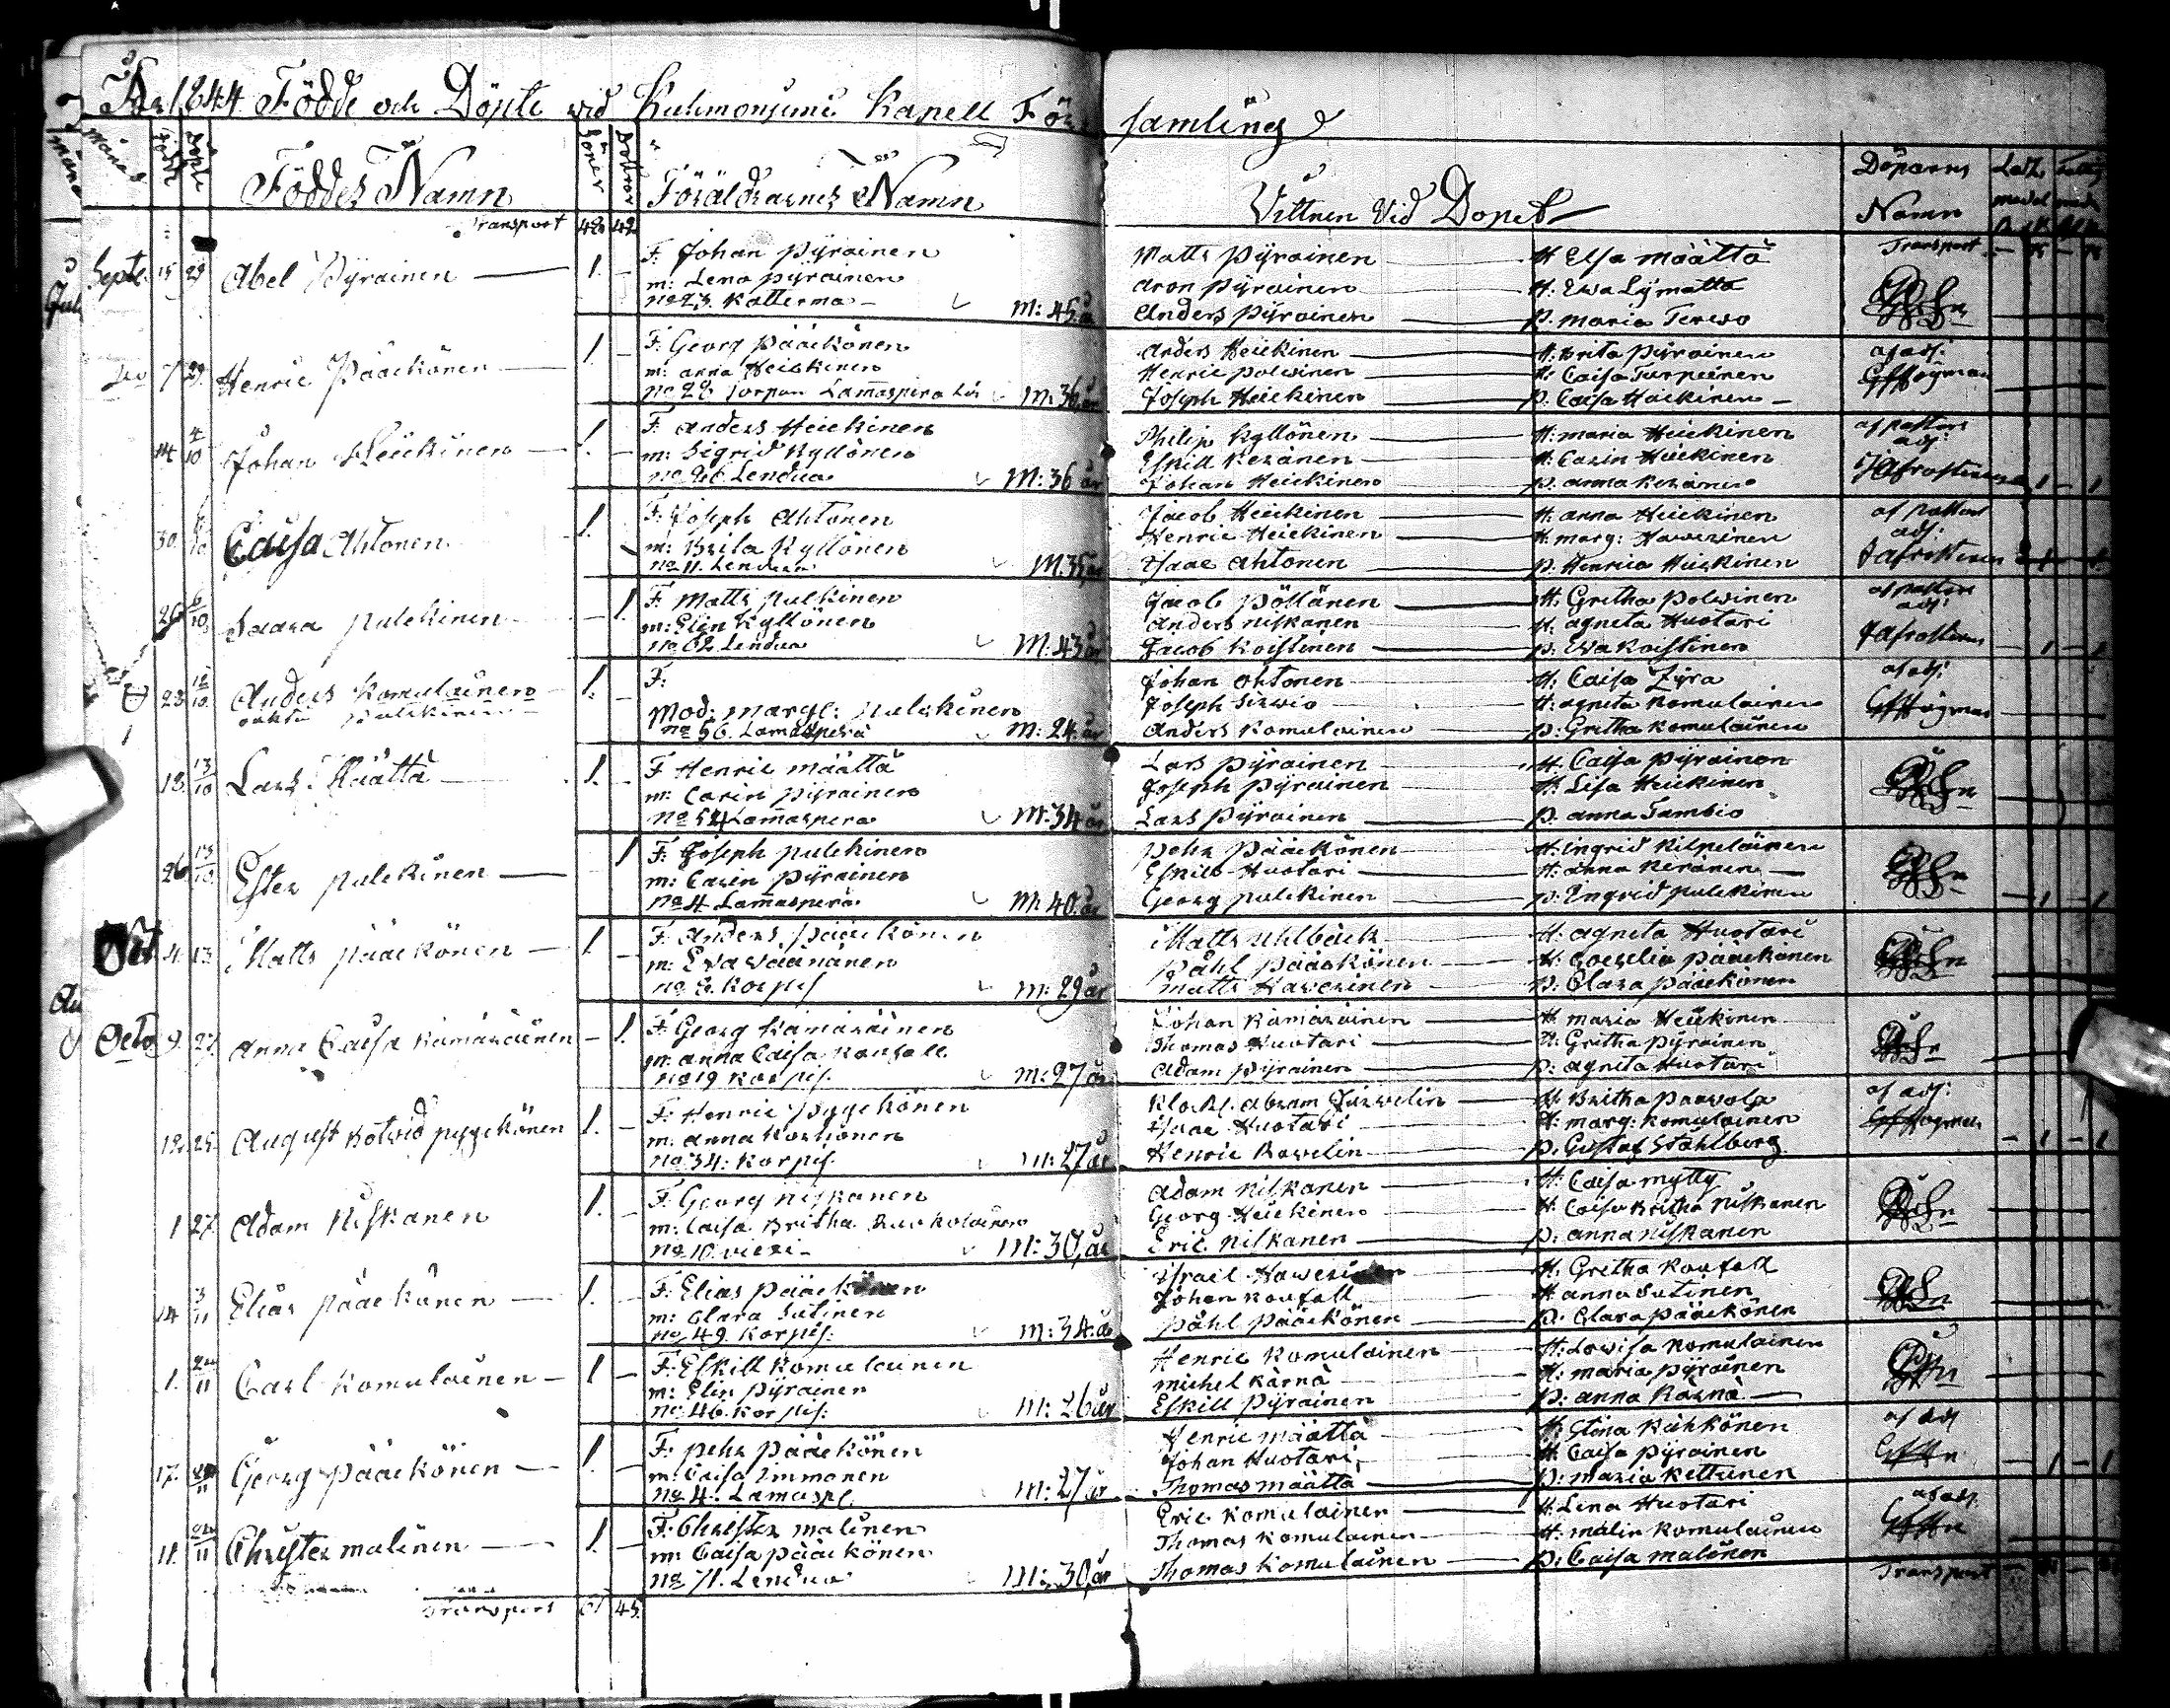 År 1844 Födde och Döpte vid Kuhmoniemi Kapell Församling
Månad Född Döpte Föddes Namn Söner Döttrar Föräldrarnes Namn Vittnen Vid Dopet Döparens Namn
Transport 48 42 Transport
Septe. 15 29 Abel Pyrainen 1. F: Johan Pyrainen Matts Pyrainen H Elsa Määttä
m: Lena pyrainen Aron Pyrainen H: Ewa Lymatta
no 23. Katterma M: 45. år Anders Pyrainen p. maria Terwo
7 29. Henric Pääckönen 1. F: Georg Pääckönen Anders Heickinen H: Brita Pyrainen af adj:
m: anna Heickinen Henric polwinen H: Caisa Turpeinen
no 28 torpan Lamaspera M: 36 år Joseph Heickinen p. Caisa Heickinen
14 4/10 Johan Heickinen 1. F: Anders Heickinen Philip Kyllönen H: maria Heickinen af pastors adj:
m: Sigrid Kyllönen Eskill Keränen H: Carin Heickinen
no 26 Lendua M: 36 år Johan Heickinen p. anna Keränen
30. Caisa Ahtonen 1. F: Joseph Ahtonen Jacob Heickinen H: anna Heickinen af pastors adj:
m: Brita Kyllönen Henric Heickinen H marg: Hawerinen
no 11. Lendua M. 35 år Isaac Ahtonen p. Henrica Heickinen
26 6/10 Saara pulckinen 1. F: Matts pulkinen Jacob Pöllänen H: Gretha Polwinen af pastors adj:
m: Elin Kyllönen Anders niskanen H: agneta Huotari
no 62 Lendua M: 43 år Jacob Koistinen p: Ewa Koistinen
23. 12/10 Anders Komulainen 1. F: Johan Ahtonen H. Caisa Zyra af adj:
pulckinen Mod: Margr: pulckinen Joseph Sirwio H: agneta Komulainen
no 56. Lamaspera M: 24. år Anders Komulainen p: Gretha Komulainen
13. 13/10 Lars Määttä 1. F Henric määttä Lars Pyrainen H. Caisa Pyrainen
m: Carin Pyrainen Joseph Pyrainen H. Lisa Heickinen
no 54 Lamaspera M: 34 år Lars Pyrainen p. anna Tambio
26 13/10 Ester pulckinen 1 F: Joseph pulckinen pehr Pääckönen H: Ingrid Kilpeläinen
m: Carin Pyrainen Eskill Huotari H: anna Keränen
no 4 Lamaspera M: 40. år Georg pulckinen p: Ingrid pulckinen
4. 13. Matts pääckönen 1. F. Anders pääckönen Matts Uhlbäck H: agneta Huotari
m: Ewa Väänänen Påhl Pääckönen H: Pääckönen
no 6. Korpis M: 29 år Matts Hawerinen p: Clara Pääckönen
Octo 9. 27. Anna Caisa Kämäräinen 1. F: Georg Kämäräinen Johan Kämäräinen H maria Heickinen
m: anna Caisa Kaufall Thomas Huotari H: Gretha Pyrainen
no 19 Korpis. M: 27 år Adam Pyrainen p: agneta Huotari
12. 25. August Botvid pyyckönen 1. F: Henric pyyckönen Klock. Abram Jurvelin H: Britha Paavola af adj:
m: anna Korhonen Isaac Huotari H: marg: Komulainen
no 34. Korpis. M: 27 år Henric Ravelin p: Gustaf Ståhlberg
1 27. Adam Niskanen 1. F: Georg Niskanen Adam Niskanen H: Caisa mylly
m: Caisa Britha Ruckolainen Georg Heickinen H: Caisa Britha Niskanen
no 10. vieri M: 30. år Eric Niskanen p. anna Niskanen
14 3/11 Elias pääckönen 1. F: Elias pääckönen Israil Hawerinen H. Gretha Kaufall
m: Clara Sutinen Johan Kaufall H anna Sutinen
no 49. Korpis: M: 34. år Påhl Pääckönen p. Clara Pääckönen
1. Carl Komulainen 1 F: Eskill Komulainen Henric Komulainen H: Lovisa Komulainen
m: Elin Pyrainen michel kärnä H: maria Pyrainen
no 46. Korpis: M: 26 år Eskill Pyrainen p: anna Kärnä
17. Georg Pääckönen 1. F: pehr Pääckönen Henric määttä H: Stina Kähkönen af adj
m: Caisa Immonen Johan Huotari H Caisa Pyrainen
no 4. Lamasp. M: 27 år Thomas määttä p: maria Kettunen
11. Christer malinen 1. F: Christer malinen Eric Komulainen H. Lena Huotari af adj.
m: Caisa pääckönen Thomas Komulainen H: malin Komulainen
no 71. Lendua M: 30. år Thomas Komulainen p: Caisa malinen
Transport 61 45. Transport